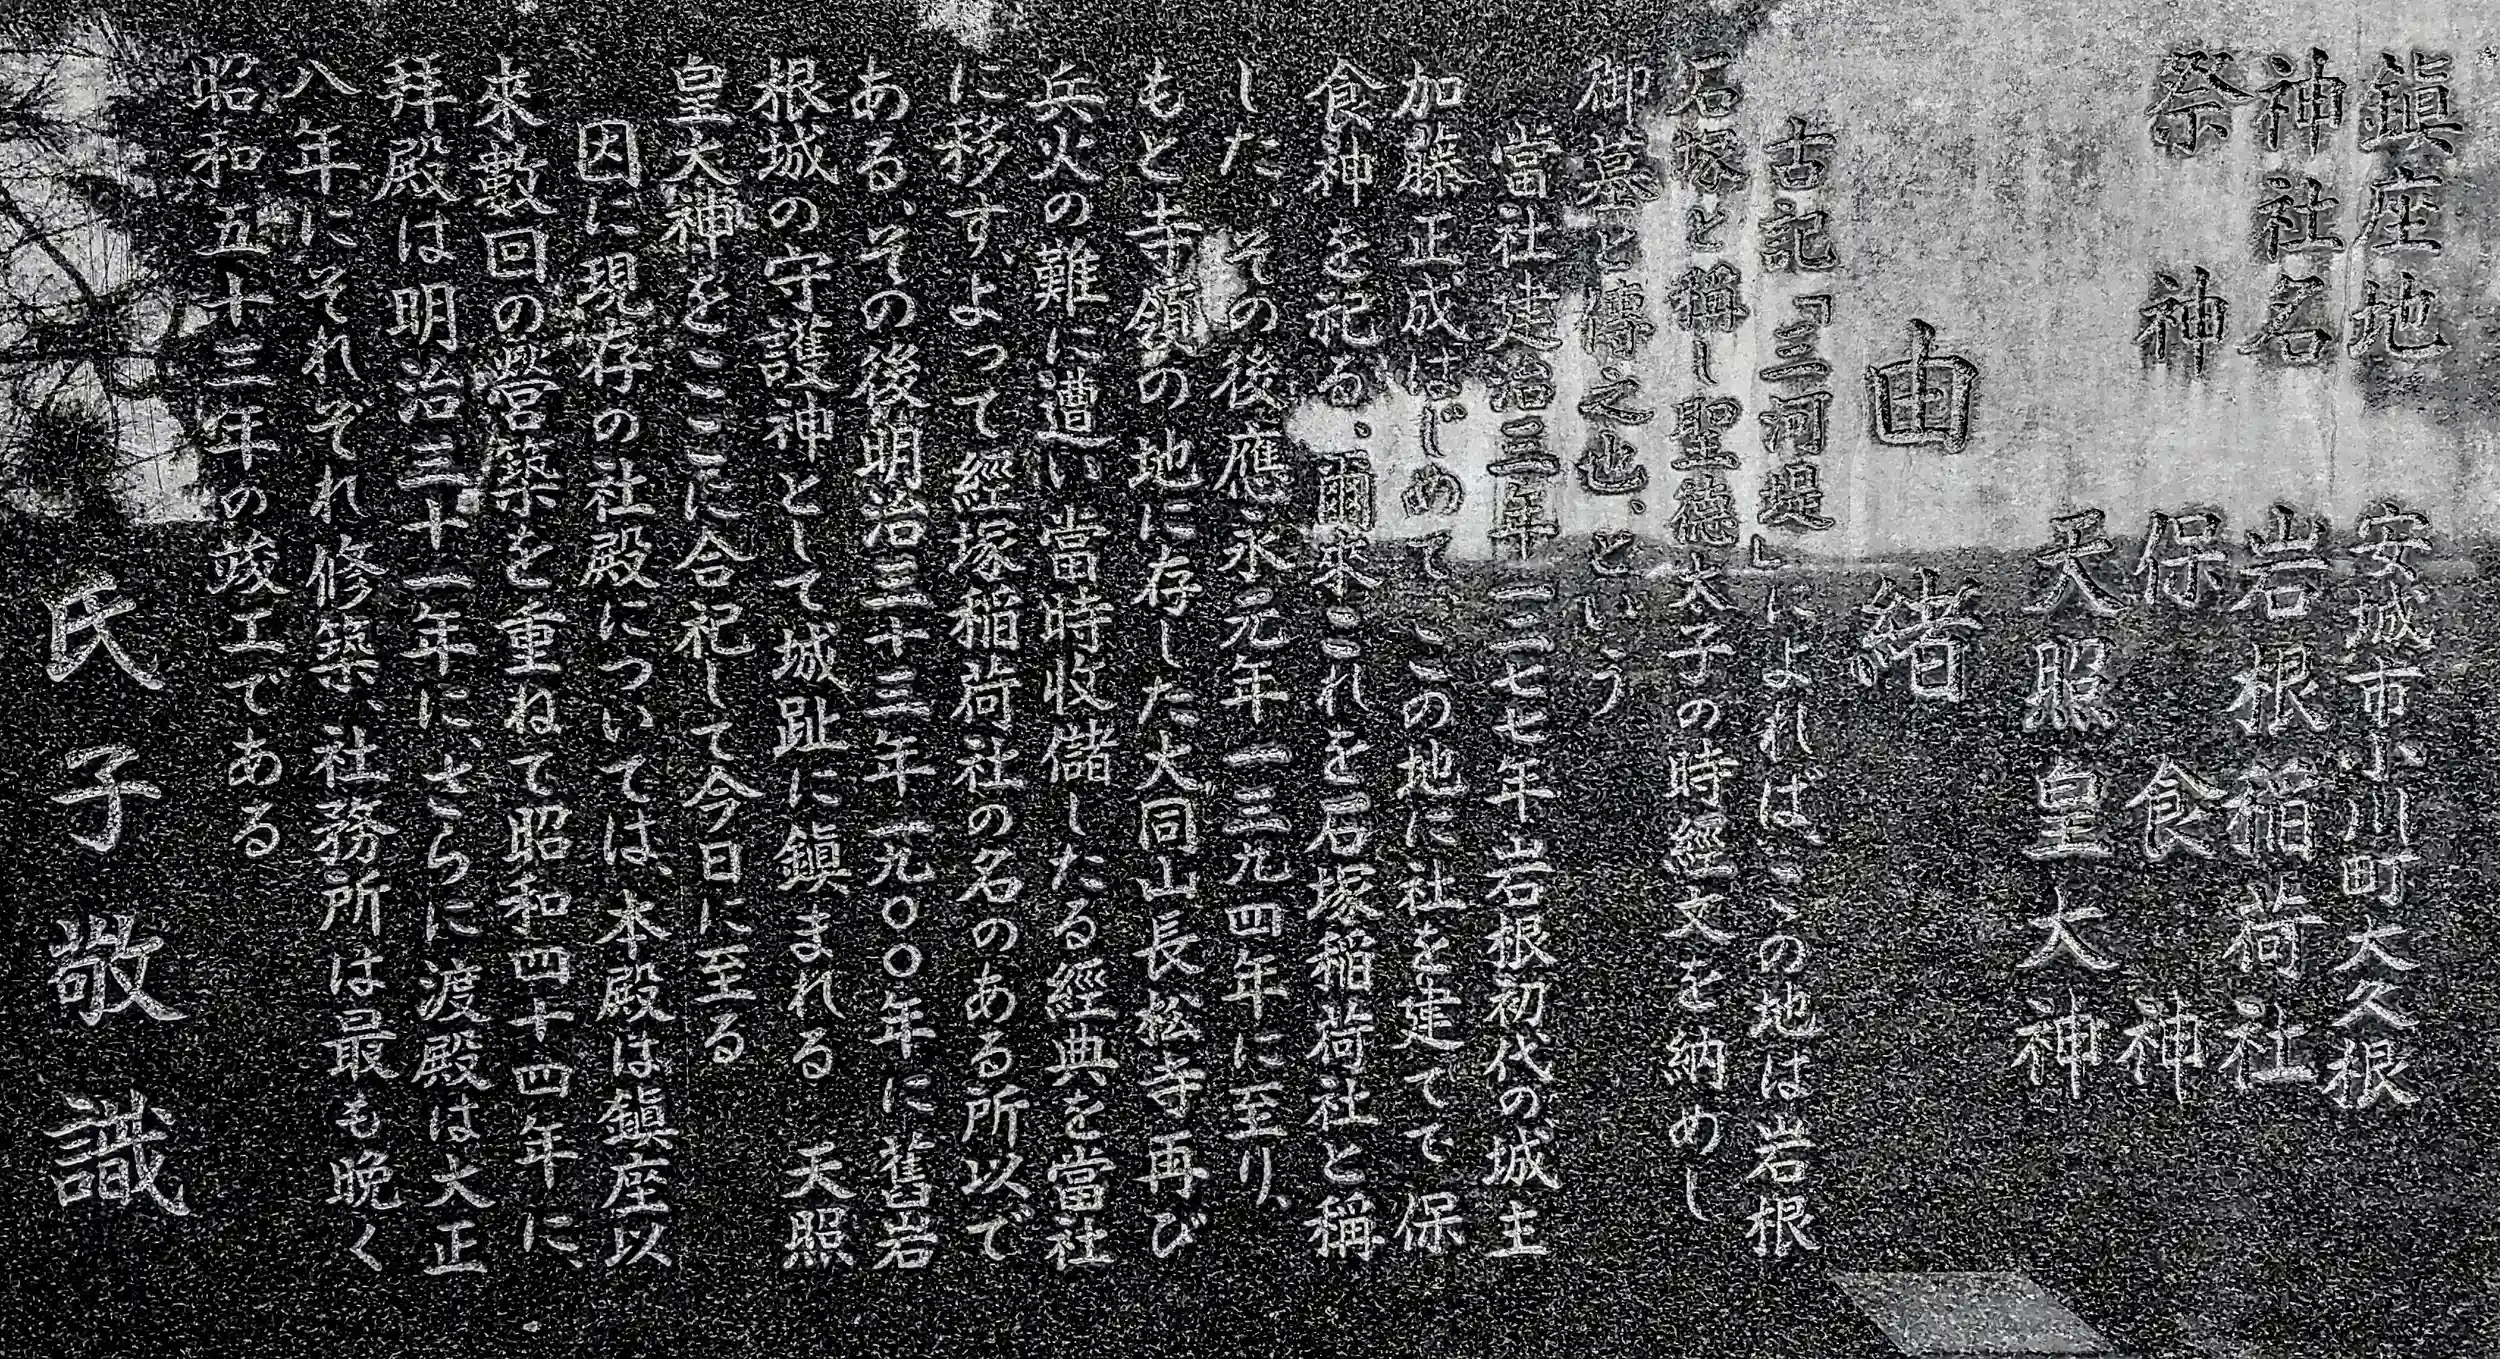 鎮座地 安城市小川町大久根
神社名 岩根稲荷社
祭神 保食神
天照皇大神
由緒
古記「三河堤」によれば、この地は岩根
石塚と稱し聖徳太子の時經文を納めし
御墓と傳之也、という
當社建治三年一二七七年岩根初代の城主
加藤正成はじめて この地に社を建てて 保
食神を祀る、爾来これを石塚稲荷社と稱
した、その後應永元年一三九四年に至り、
もと寺領の地に存した大同山長松寺再び
兵火の難に遭い當時收儲したる經典を當社
に移す、よって經塚稲荷社の名のある所以で
ある、その後明治三十三年一九〇〇年に舊岩
根城の守護神として城趾に鎮まれる 天照
皇大神をここに合祀して今日に至る
因に現存の社殿については、本殿は鎮座以
来數回の營築を重ねて昭和四十四年に、
拜殿は明治三十一年に、さらに渡殿は大正
八年にそれぞれ修築、社務所は最も晩く
昭和五十三年の竣工である
氏子敬識